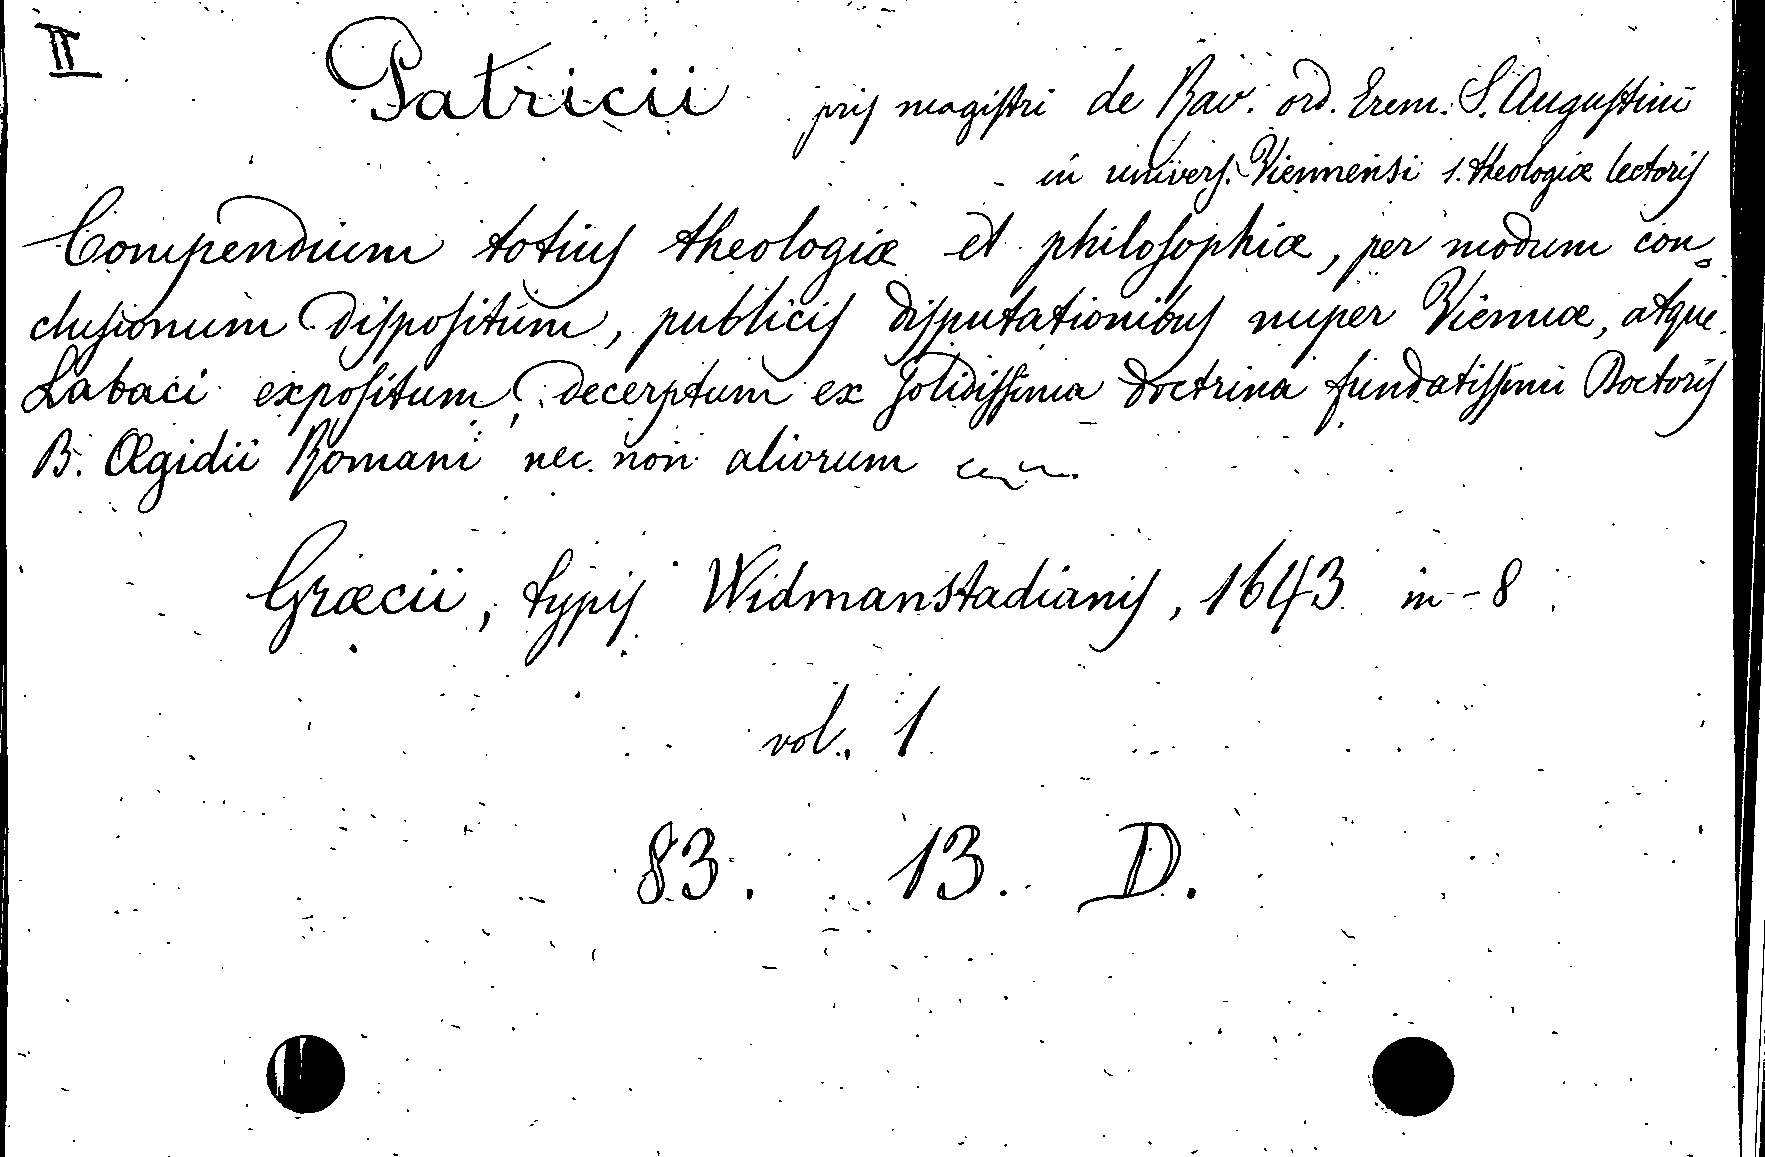 II
Patricii pris magistri de Rav. ord. Erem. S. Augustini
in univers. Viennensi s. theologiæ lectoris
Compendium totius theologiæ et philosophiæ, per modum con=
clusionum dispositum, publicis disputationibus nuper Viennæ, atque
Labaci expositum, decerptum ex solidissima doctrina fundatissimi Doctoris
B. Ægidii Romani nec non aliorum
Græcii, typis Widmanstadianis, 1643 in-8
vol. 1
83. 13. D.